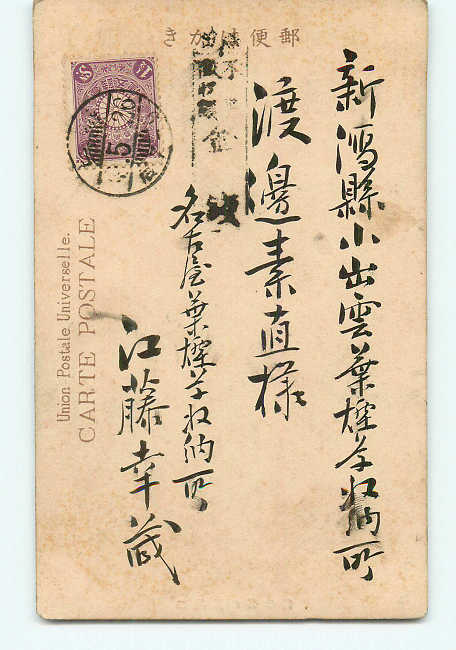 郵便はがき
新潟縣小出雲葉煙草收納所
渡邊素直様
名古屋葉煙草收納所
江藤幸蔵
Union Postale Universelle.
CARTE POSTALE